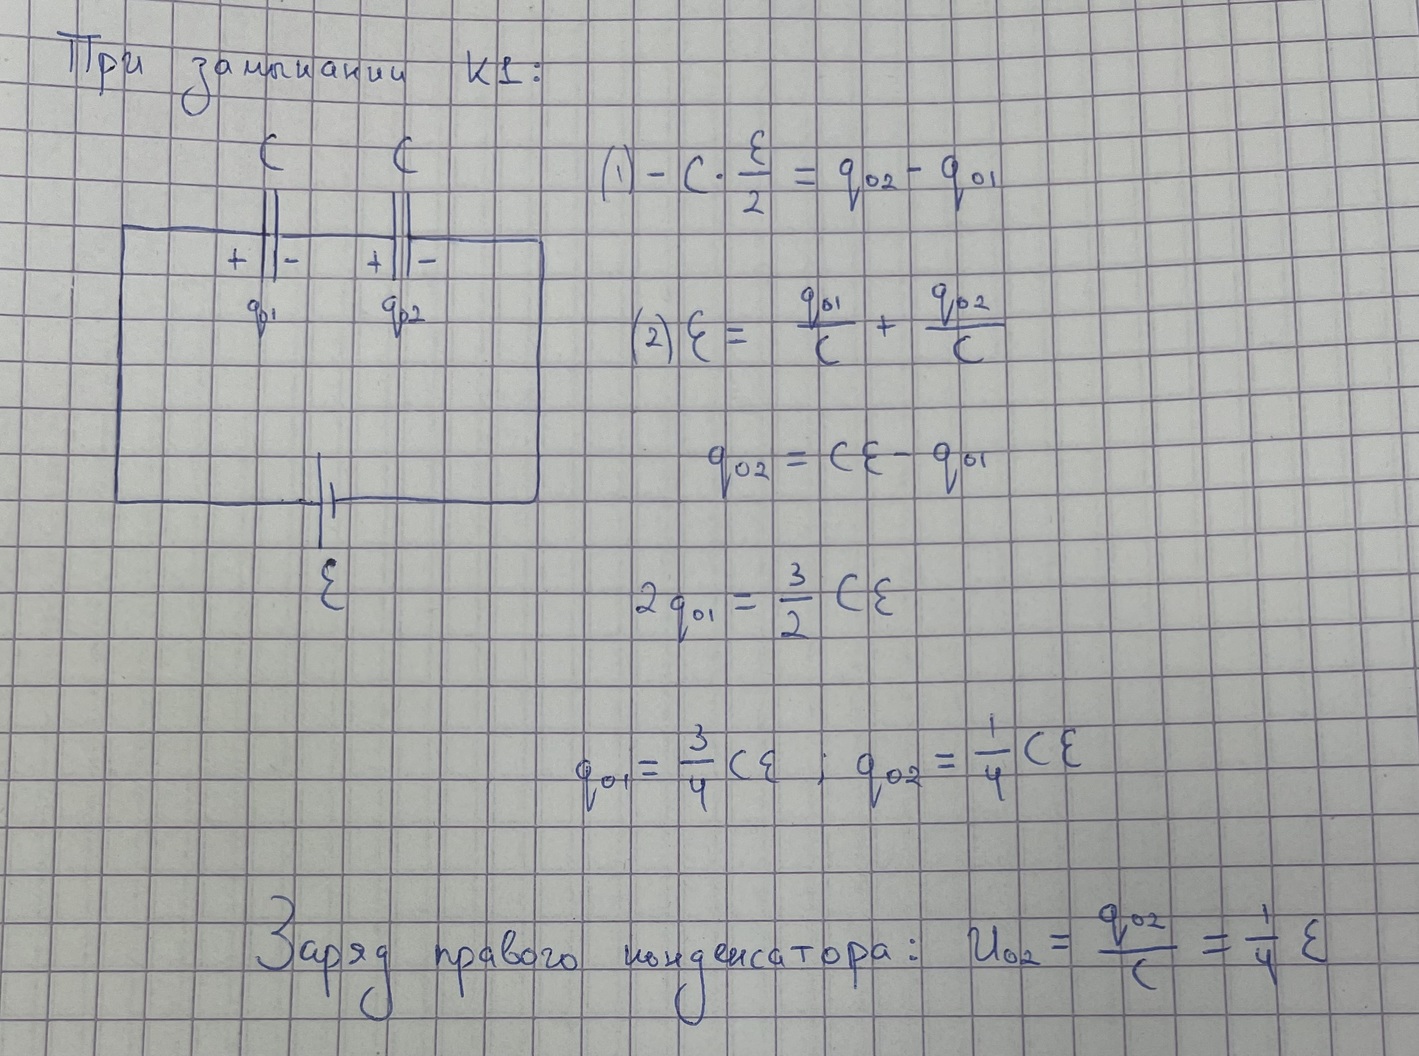 При замыкании K1:
C C
(1) - C · ε/2 = q02 - q01
+ - + -
q01 q02
(2) ε = q01/C + q02/C
q02 = Cε - q01
ε
2q01 = 3/2 Cε
q01 = 3/4 Cε ; q02 = 1/4 Cε
Заряд правого конденсатора: U02 = q02/C = 1/4 ε